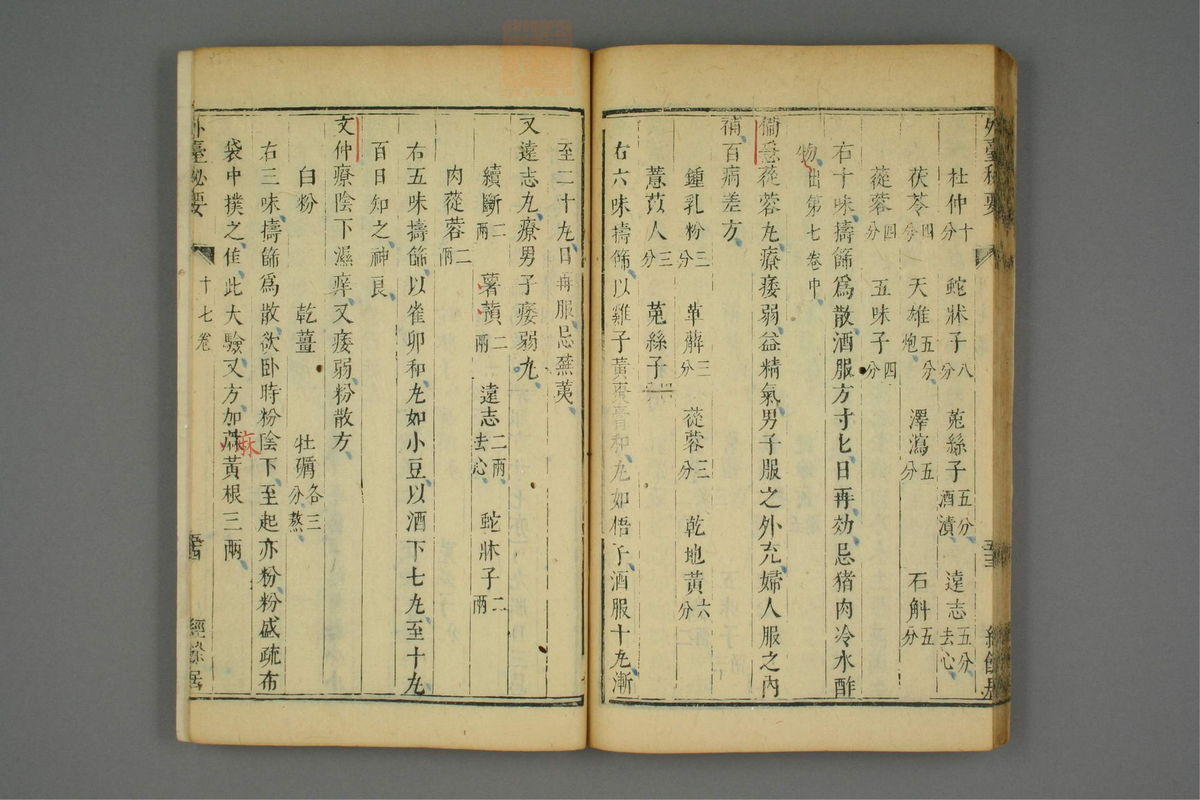 外臺秘要
杜仲十分 蛇牀子八分 菟絲子五分酒漬 遠志五分去心
茯苓四分 天雄五分炮 澤瀉五分 石斛五分
蓯蓉四分 五味子四分
右十味擣篩爲散酒服方寸匕日再効忌猪肉冷水酢
物出第七卷中
備急蓯蓉丸療痿弱益精氣男子服之外充婦人服之内
補百病差方
鍾乳粉三分 萆薢三分 蓯蓉三分 乾地黃六分
薏苡人三分 菟絲子
右六味擣篩以雞子黃棗膏和丸如梧子酒服十丸漸
至二十丸日再服忌蕪荑
又遠志丸療男子痿弱方
續斷二兩 薯蕷二兩 遠志二兩去心 蛇牀子二兩
肉蓯蓉二兩
右五味擣篩以雀卵和丸如小豆以酒下七丸至十丸
百日知之神良
文仲療陰下濕癢又痿弱粉散方
白粉 乾薑 牡礪各三分熬
右三味擣篩爲散欲卧時粉陰下至起亦粉粉盛疏布
袋中撲之佳此大驗又方加黃根三兩
麻
外臺秘要 十七卷 經餘居